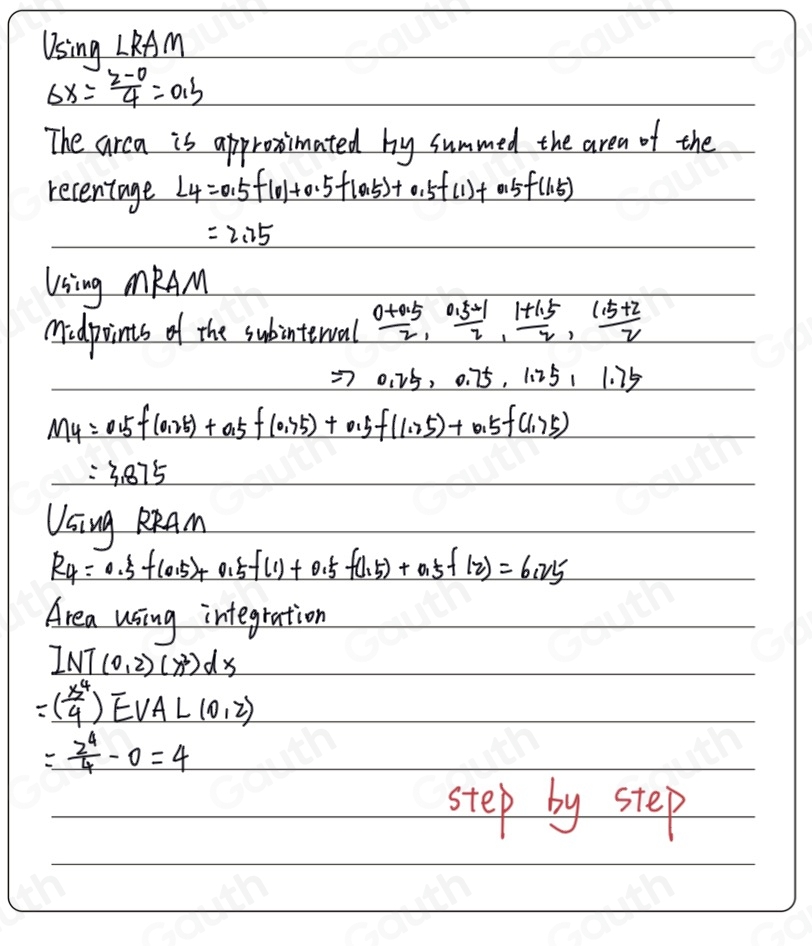 Using LRAM
Δx = \frac{2-0}{4} = 0.5
The area is approximated by summed the area of the
recentnge L4 = 0.5f(0) + 0.5f(0.5) + 0.5f(1) + 0.5f(1.5)
= 2.25
Using MRAM
Midpoints of the subinterval \frac{0+0.5}{2}, \frac{0.5+1}{2}, \frac{1+1.5}{2}, \frac{1.5+2}{2}
⇒ 0.25, 0.75, 1.25, 1.75
M4 = 0.5f(0.25) + 0.5f(0.75) + 0.5f(1.25) + 0.5f(1.75)
= 3.875
Using RRAM
R4 = 0.5f(0.5) + 0.5f(1) + 0.5f(1.5) + 0.5f(2) = 6.25
Area using integration
INT(0,2)(x³)dx
= (\frac{x^4}{4}) EVAL(0,2)
= \frac{2^4}{4} - 0 = 4
step by step